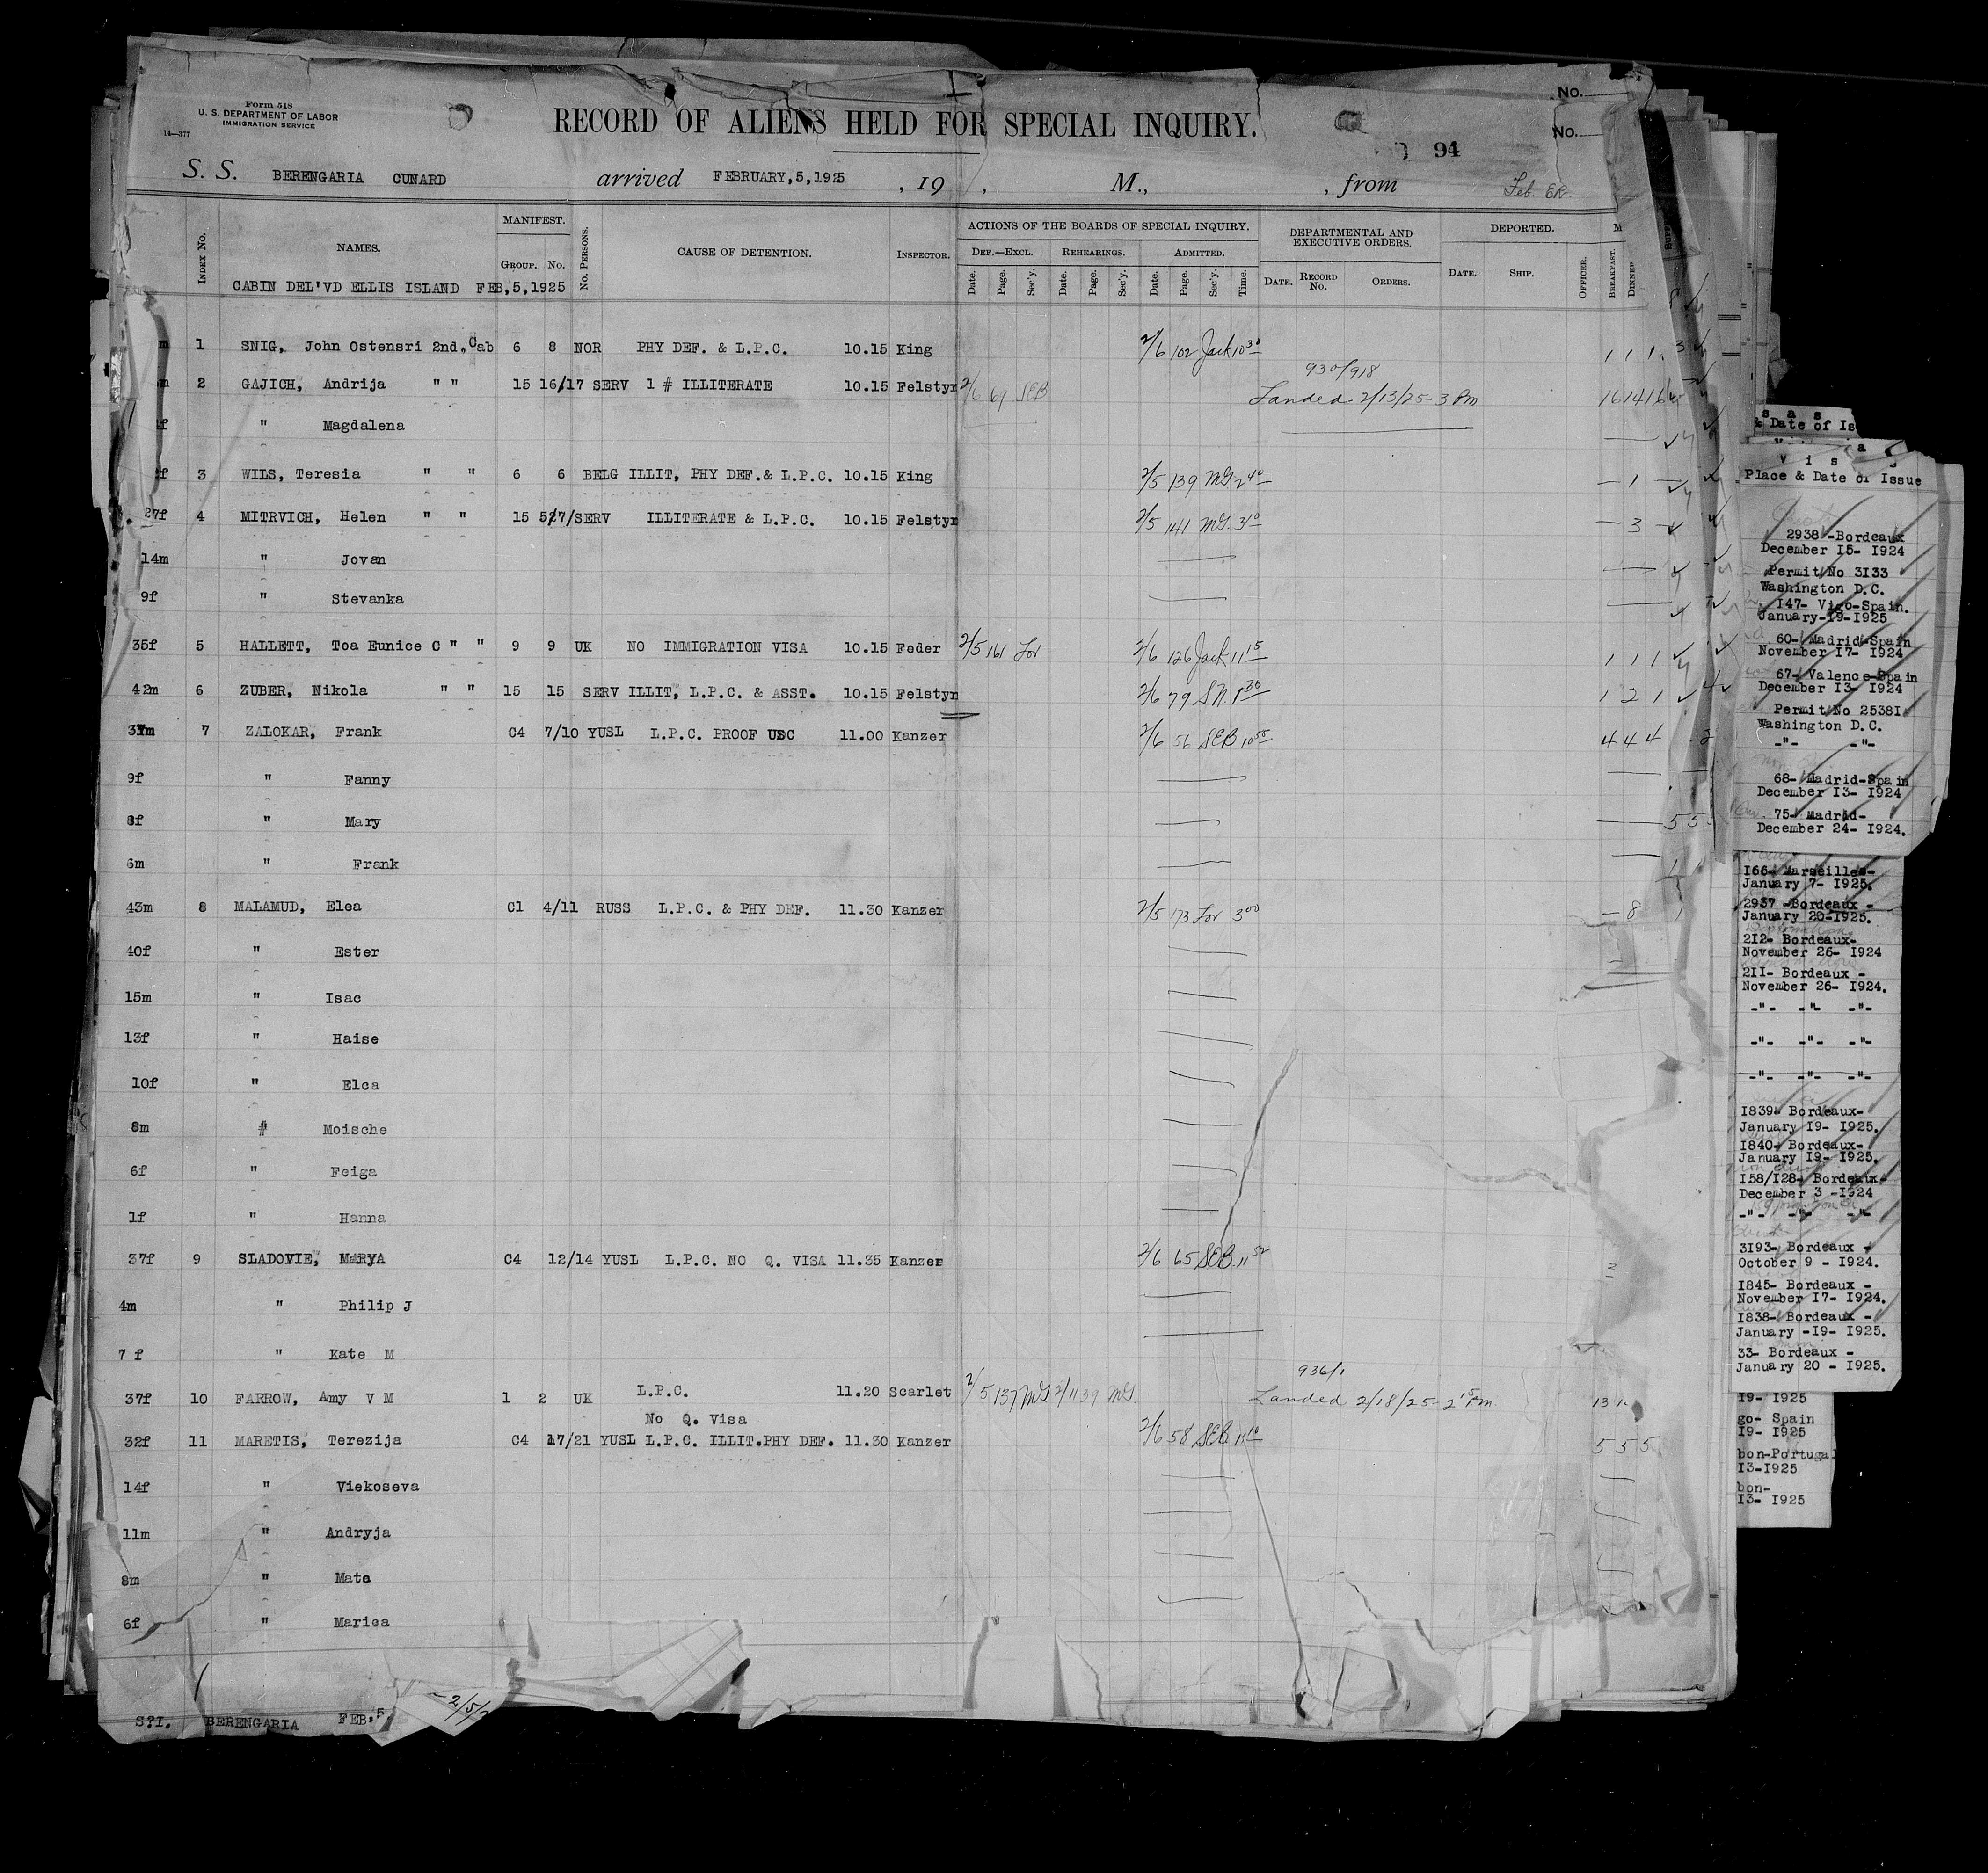 Form 518
U. S. DEPARTMENT OF LABOR
IMMIGRATION SERVICE
14—377
RECORD OF ALIENS HELD FOR SPECIAL INQUIRY.
No.
No.
94
S. S. BERENGARIA CUNARD arrived FEBRUARY,5,1925 , 19 , M., , from Feb. ER.
INDEX No. NAMES. MANIFEST. GROUP. No. No. PERSONS. CAUSE OF DETENTION. INSPECTOR. ACTIONS OF THE BOARDS OF SPECIAL INQUIRY. DEPARTMENTAL AND EXECUTIVE ORDERS. DEPORTED.
DEF.—EXCL. REHEARINGS. ADMITTED.
Date. Page. Sec'y. Date. Page. Sec'y. Date. Page. Sec'y. Time. DATE. RECORD No. ORDERS. DATE. SHIP. OFFICER. BREAKFAST. DINNER
CABIN DEL'VD ELLIS ISLAND FEB,5,1925
m 1 SNIG, John Ostensri 2nd.Cab 6 8 NOR PHY DEF. & L.P.C. 10.15 King 2/6 102 Jack 10 30 1 1 1
930/918
m 2 GAJICH, Andrija " " 15 16/17 SERV 1 # ILLITERATE 10.15 Felstyn 2/6 61 SEB Landed 2/13/25 - 3 Pm 16 14 16
f " Magdalena
f 3 WILS, Teresia " " 6 6 BELG ILLIT, PHY DEF.& L.P.C. 10.15 King 2/5 139 MG 2 40 — 1 —
27f 4 MITRVICH, Helen " " 15 5/7/ SERV ILLITERATE & L.P.C. 10.15 Felstyn 2/5 141 MG. 3 10 — 3 —
14m " Jovan
9f " Stevanka
35f 5 HALLETT, Toa Eunice C " " 9 9 UK NO IMMIGRATION VISA 10.15 Feder 2/5 161 For 2/6 126 Jack 11 15 1 1 1
42m 6 ZUBER, Nikola " " 15 15 SERV ILLIT, L.P.C. & ASST. 10.15 Felstyn 2/6 79 SN. 1 30 1 2 1
37m 7 ZALOKAR, Frank C4 7/10 YUSL L.P.C. PROOF USC 11.00 Kanzer 2/6 56 SEB 10 50 4 4 4
9f " Fanny
8f " Mary
6m " Frank
43m 8 MALAMUD, Elea C1 4/11 RUSS L.P.C. & PHY DEF. 11.30 Kanzer 2/5 173 For 3 00 — 8
40f " Ester
15m " Isac
13f " Haise
10f " Elca
8m # Moische
6f " Feiga
1f " Hanna
37f 9 SLADOVIE, MARYA C4 12/14 YUSL L.P.C. NO Q. VISA 11.35 Kanzer 2/6 65 SEB. 11 52
4m " Philip J
7 f " Kate M
936/1
37f 10 FARROW, Amy V M 1 2 UK L.P.C. 11.20 Scarlet 2/5 137 MG 2/11 39 MG. Landed 2/18/25 - 2 15 Pm.
No Q. Visa
32f 11 MARETIS, Terezija C4 17/21 YUSL L.P.C. ILLIT.PHY DEF. 11.30 Kanzer 2/6 58 SEB 11 10 5 5 5
14f " Viekoseva
11m " Andryja
8m " Mate
6f " Marica
S?I. BERENGARIA FEB.5
2/5/2
& Date of Is
V i s a s
Place & Date of Issue
2938 -Bordeaux
December I5- I924
Permit No 3I33
Washington D.C.
I47- Vigo-Spain.
January-I9-I925
60- Madrid-Spain
November I7- I924
67- Valence-Spain
December I3- I924
Permit No 2538I
Washington D.C.
-"- -"-
68- Madrid-Spain
December I3- I924
75- Madrid-
December 24- I924.
I66- Marseilles-
January 7- I925.
2937 -Bordeaux -
January 20-I925.
2I2- Bordeaux-
November 26- I924
2II- Bordeaux -
November 26- I924.
-"- -"- -"-
-"- -"- -"-
-"- -"- -"-
I839- Bordeaux-
January I9- I925.
I840- Bordeaux-
January I9- I925.
I58/I28- Bordeaux-
December 3 -I924
-"- -"- -"-
3I93- Bordeaux -
October 9 - I924.
I845- Bordeaux -
November I7- I924.
I838- Bordeaux -
January -I9- I925.
33- Bordeaux -
January 20 - I925.
I9- I925
go- Spain
I9- I925
bon-Portugal
I3-I925
bon-
I3- I925